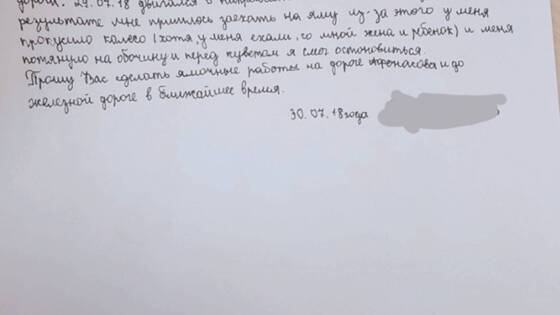 дороги. 29.07.18 двигался в направле
результате мне пришлось заехать на яму из-за этого у меня
прокусило колесо (хотя у меня ехали со мной жена и ребенок) и меня
потянуло на обочину и перед кувстом я смог остоновиться.
Прошу Вас сделать ямочные работы на дороге Афонасова и до
железной дороге в ближайшее время.
30.07.18 года